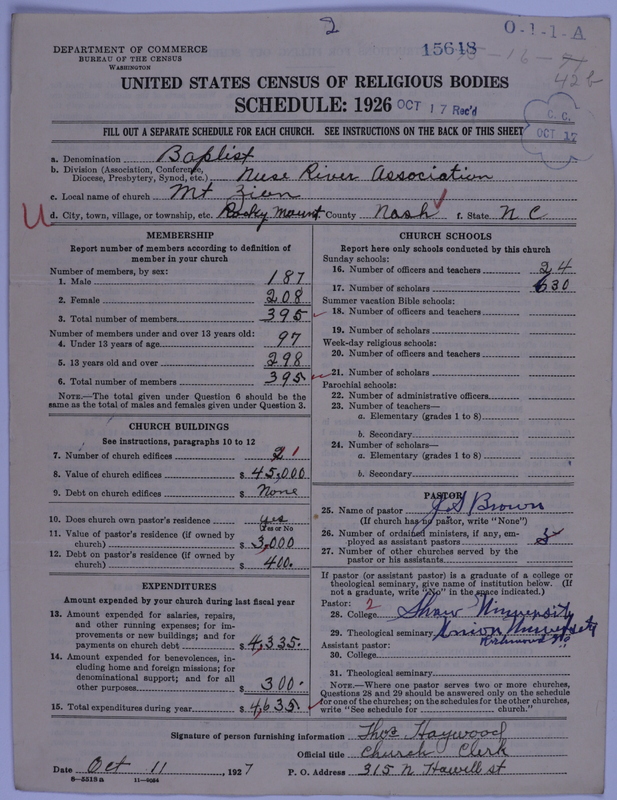 2
O-1-1-A
15648
DEPARTMENT OF COMMERCE
BUREAU OF THE CENSUS
WASHINGTON
42b
UNITED STATES CENSUS OF RELIGIOUS BODIES
SCHEDULE: 1926 OCT 17 Rec'd
C. C.
OCT 17
FILL OUT A SEPARATE SCHEDULE FOR EACH CHURCH. SEE INSTRUCTIONS ON THE BACK OF THIS SHEET
a. Denomination Baptist
b. Division (Association, Conference,
Diocese, Presbytery, Synod, etc.) Nuse River Association
c. Local name of church Mt Zion
d. City, town, village, or township, etc. Rocky Mount County Nash f. State N C
MEMBERSHIP
Report number of members according to definition of
member in your church
Number of members, by sex:
1. Male 187
2. Female 208
3. Total number of members 395
Number of members under and over 13 years old:
4. Under 13 years of age 97
5. 13 years old and over 298
6. Total number of members 395
NOTE.—The total given under Question 6 should be
same as the total of males and females given under Question 3.
CHURCH BUILDINGS
See instructions, paragraphs 10 to 12
7. Number of church edifices 2 1
8. Value of church edifices $ 45,000
9. Debt on church edifices $ None
10. Does church own pastor's residence yes
Yes or No
11. Value of pastor's residence (if owned by
church) $ 3,000
12. Debt on pastor's residence (if owned by
church) $ 400.
EXPENDITURES
Amount expended by your church during last fiscal year
13. Amount expended for salaries, repairs,
and other running expenses; for im-
provements or new buildings; and for
payments on church debt $ 4,335.
14. Amount expended for benevolences, in-
cluding home and foreign missions; for
denominational support; and for all
other purposes $ 300.
15. Total expenditures during year $ 4,635
CHURCH SCHOOLS
Report here only schools conducted by this church
Sunday schools:
16. Number of officers and teachers 24
17. Number of scholars 630
Summer vacation Bible schools:
18. Number of officers and teachers
19. Number of scholars
Week-day religious schools:
20. Number of officers and teachers
21. Number of scholars
Parochial schools:
22. Number of administrative officers
23. Number of teachers—
a. Elementary (grades 1 to 8)
b. Secondary
24. Number of scholars—
a. Elementary (grades 1 to 8)
b. Secondary
PASTOR
25. Name of pastor J S Brown
(If church has no pastor, write "None")
26. Number of ordained ministers, if any, em-
ployed as assistant pastors
27. Number of other churches served by the
pastor or his assistants
If pastor (or assistant pastor) is a graduate of a college or
theological seminary, give name of institution below. (If
not a graduate, write "No" in the space indicated.)
Pastor: 2
28. College Shaw University
29. Theological seminary Union University
Richmond Va
Assistant pastor:
30. College
31. Theological seminary
NOTE.—Where one pastor serves two or more churches,
Questions 28 and 29 should be answered only on the schedule
for one of the churches; on the schedules for the other churches,
write "See schedule for church."
Signature of person furnishing information Thos Haywood
Official title Church Clerk
Date Oct 11, 1927 P. O. Address 315 N Howell st
8-5518a 11-9064